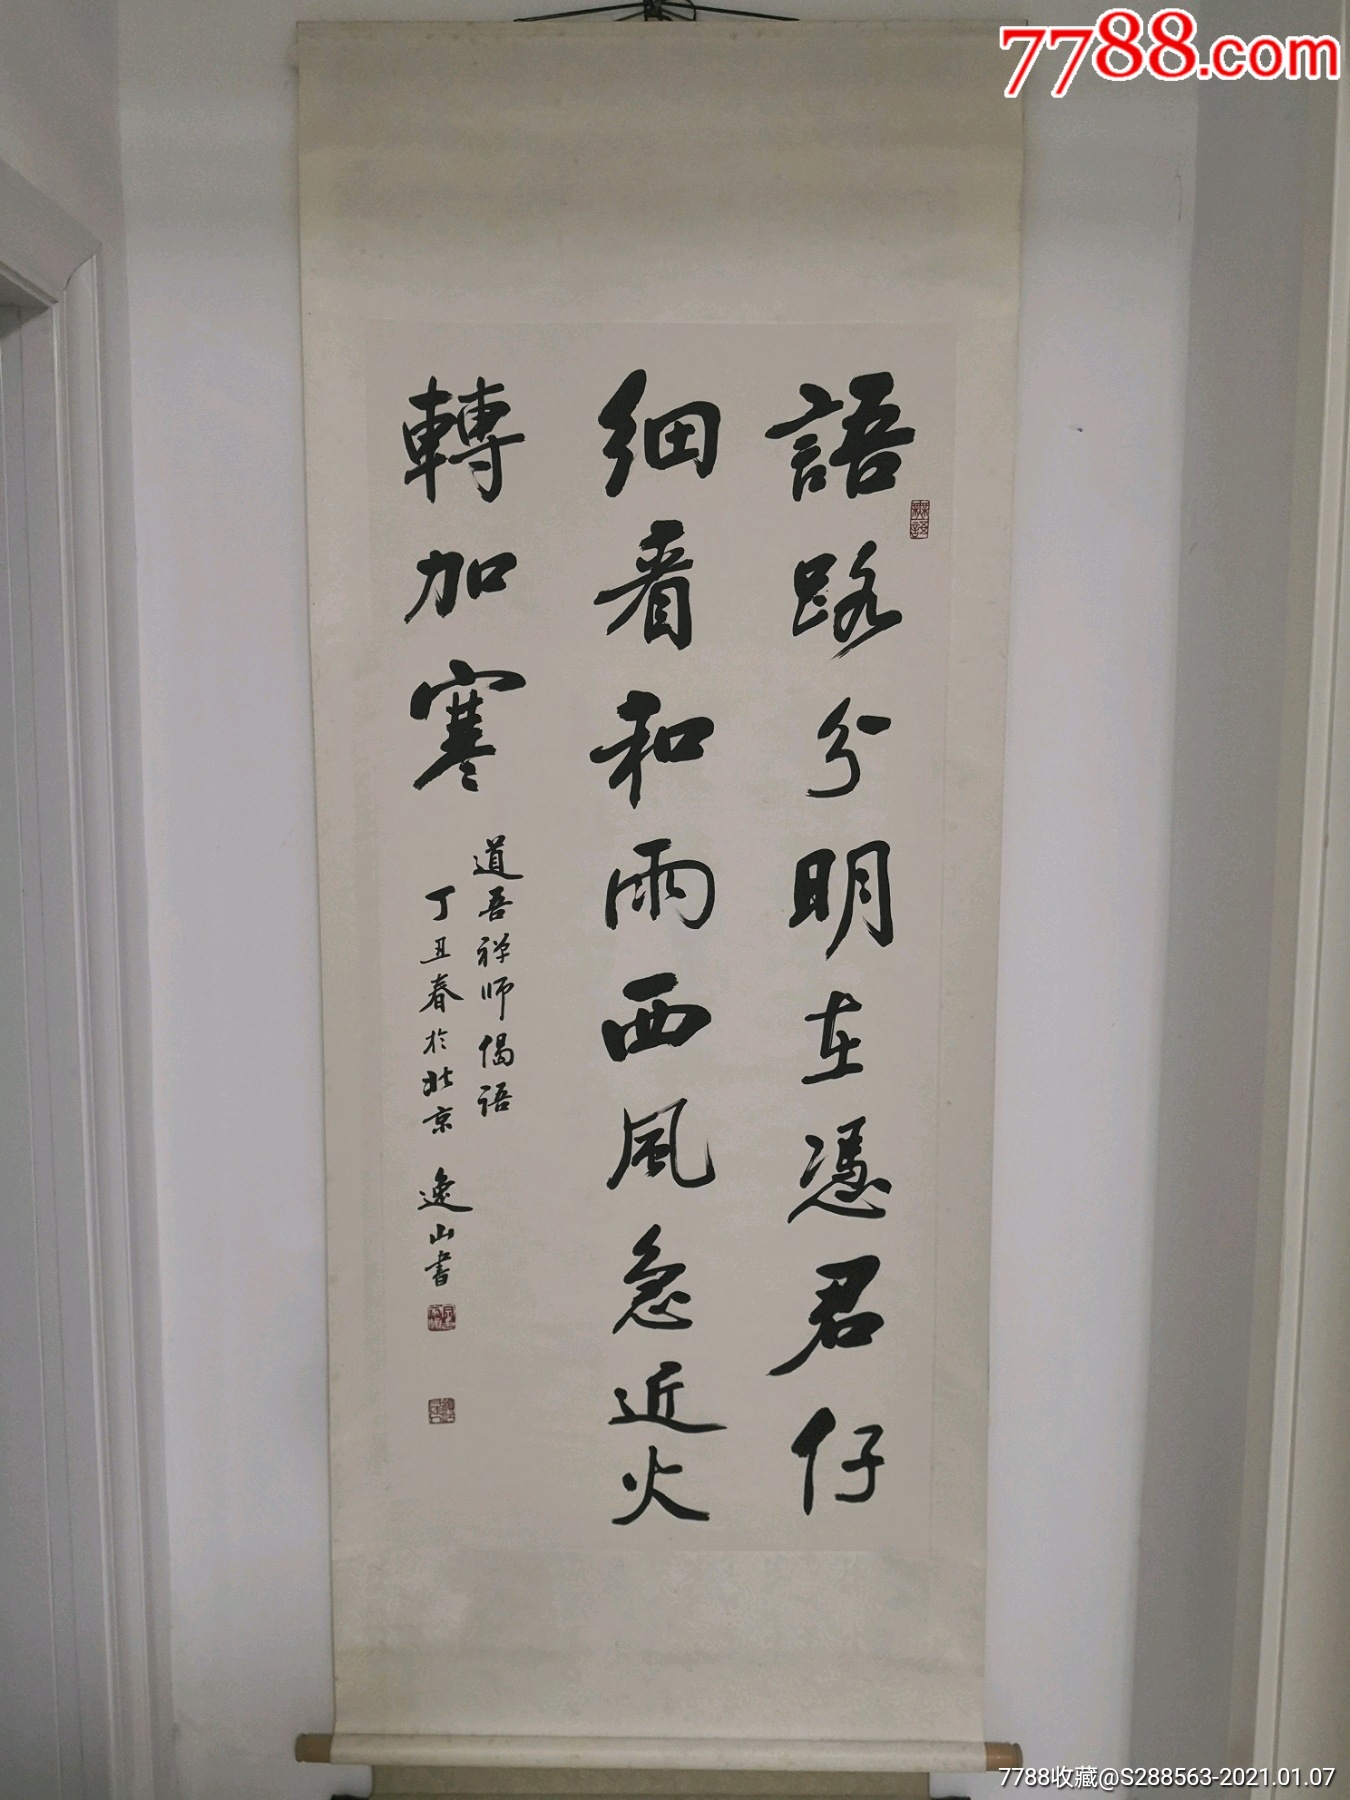 7788.com
語路分明在憑君仔
細看和雨西風急近火
轉加寒
道吾禅师偈语
丁丑春於北京 逸山書
7788收藏@S288563-2021.01.07